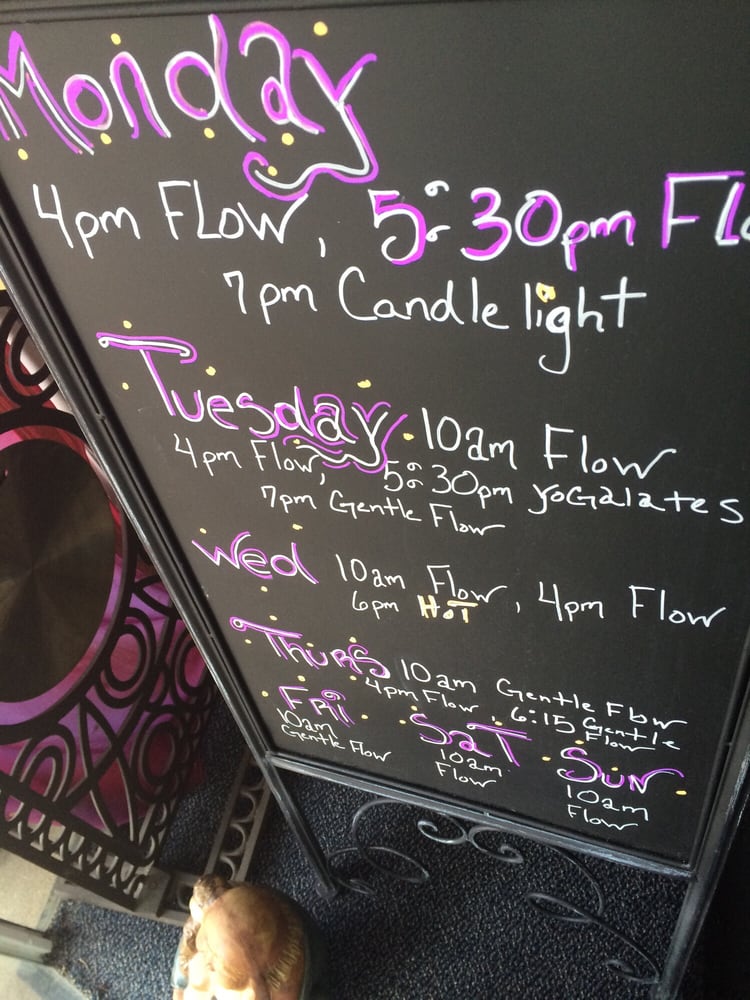 Monday
4pm FLOW, 5:30pm Flo
7pm Candle light
Tuesday 10am Flow
4pm Flow, 5:30pm YoGalates
7pm Gentle Flow
Wed 10am Flow, 4pm Flow
6pm HOT
THURS 10am Gentle Flow
4pm Flow 6:15 Gentle Flow
FRi
10am
Gentle Flow
SaT
10am
Flow
Sun
10am
Flow